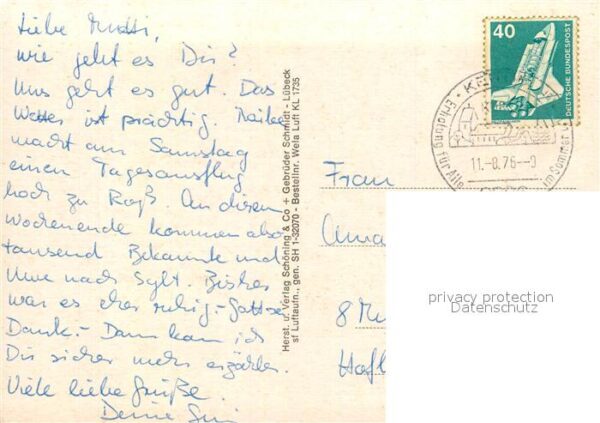 Liebe Mutti,
wie geht es Dir?
Uns geht es gut. Das
Wetter ist prächtig. Heike
macht am Samstag
einen Tagesausflug
hoch zu Roß. An diesem
Wochenende kommen also
tausend Bekannte und
Uwe nach Sylt. Bisher
war es eher ruhig.- Gottsei
Dank.- Dann kann ich
Dir sicher mehr erzählen.
Viele liebe Grüße.
Deine
Herst. u. Verlag Schöning & Co + Gebrüder Schmidt - Lübeck
sf Luftaufn., gen. SH 1-32070 - Bestellnr. Wela Luft KL 1735
40
DEUTSCHE BUNDESPOST
Erholung für Alle
im Sommer
11.-8.76-9
Frau
8 Mü
privacy protection
Datenschutz